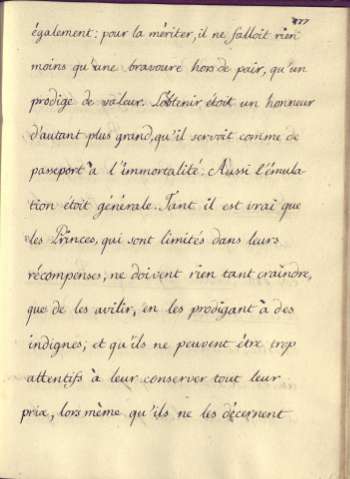 177
également: pour la mériter, il ne falloit rien
moins qu'une bravoure hors de pair, qu'un
prodige de valeur. L'obtenir étoit un honneur
d'autant plus grand, qu'il servoit comme de
passeport à l'immortalité. Aussi l'émula-
tion étoit générale. Tant il est vrai que
les Princes, qui sont limités dans leurs
récompenses, ne doivent rien tant craindre,
que de les avilir, en les prodigant à des
indignes; et qu'ils ne peuvent être trop
attentifs à leur conserver tout leur
prix, lors même qu'ils ne les décernent